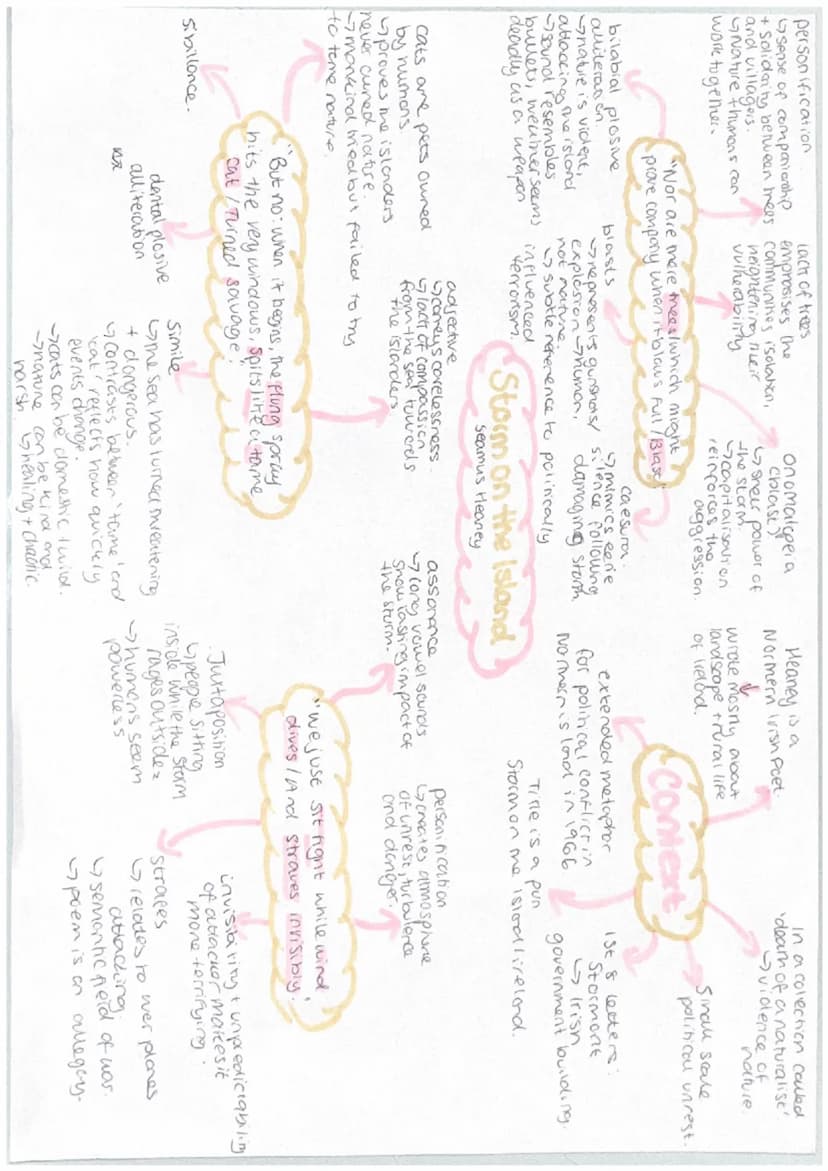 Storm on the Island
Seamus Heaney
personification
↳ sense of companionship
+ solidarity between trees
and villagers.
↳ Nature + humans can
work together.
lack of trees
emphasises the
communities isolation,
heightening their
vulnerability
onomatopeia
(blast)
↳ sheer power of
the storm
↳ capitalisation
reinforces the
aggression.
"Nor are there trees/which might
prove company when it blows full/Blast"
bilabial plosive
alliteration
→ nature is violent,
attacking the island
→ sound resembles
bullets, weather seems
deadly as a weapon
blasts
↳ represents gunshots/
explosion → human,
not nature
↳ subtle reference to politically
influenced
terrorism.
caesura.
↳ mimics eerie
silence following
damaging storm
Heaney is a
Northern Irish Poet.
wrote mostly about
landscape + rural life
of Ireland.
In a collection called
'death of a naturalist'
↳ violence of
nature.
Context
Small scale
political unrest.
extended metaphor
for political conflict in
Northern island in 1966
Title is a pun
Storm on the Island/ireland.
1st 8 letters:
Stormont
↳ Irish
government building.
cats are pets owned
by humans
↳ proves the islanders
never owned nature.
→ mankind tried but failed to try
to tame nature.
adjective
↳ conveys carelessness.
↳ lack of compassion
from the sea towards
the islanders
"But no: when it begins, the flung spray
hits the very windows, spits like a tame
cat/Turned savage."
Sibillance.
dental plosive
alliteration
simile
↳ the sea has turned threatening
+ dangerous.
↳ contrasts between 'tame' and
'cat' reflects how quickly
events change.
→ cats can be domestic + wild.
→ nature can be kind and
harsh. ↳ healing + chaotic.
assonance
→ long vowel sounds
show lasting impact of
the storm.
personification
↳ creates atmosphere
of unrest, turbulence
and danger.
"We just sit tight while wind
dives/And strafes invisibly."
Juxtaposition
↳ people sitting
inside while the storm
rages outside =
→ humans seem
powerless
strafes
↳ relates to war planes
attacking.
↳ semantic field of war.
↳ poem is an allegory.
invisibility + unpredictability
of attacker makes it
more terrifying.